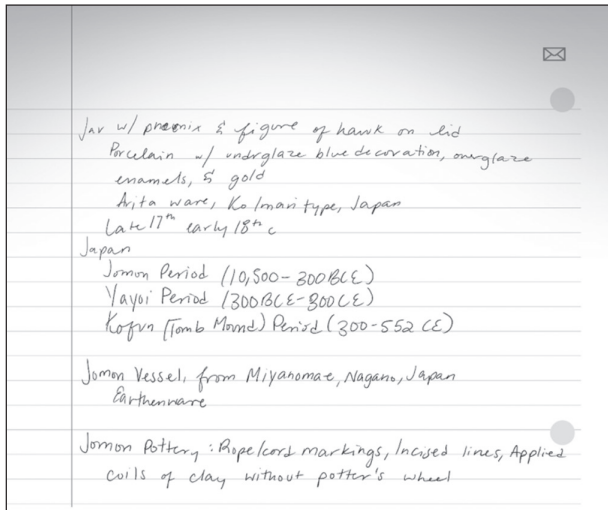 Jar w/ pheonix & figure of hawk on lid
Porcelain w/ undrglaze blue decoration, overglaze
enamels, & gold
Arita ware, Ko Imari type, Japan
Late 17th early 18th c
Japan
Jomon Period (10,500-300BCE)
Yayoi Period (300BCE-300CE)
Kofun (Tomb Mound) Period (300-552 CE)
Jomon Vessel, from Miyanomae, Nagano, Japan
Earthenware
Jomon Pottery: Rope/cord markings, Incised lines, Applied
coils of clay without potter's wheel